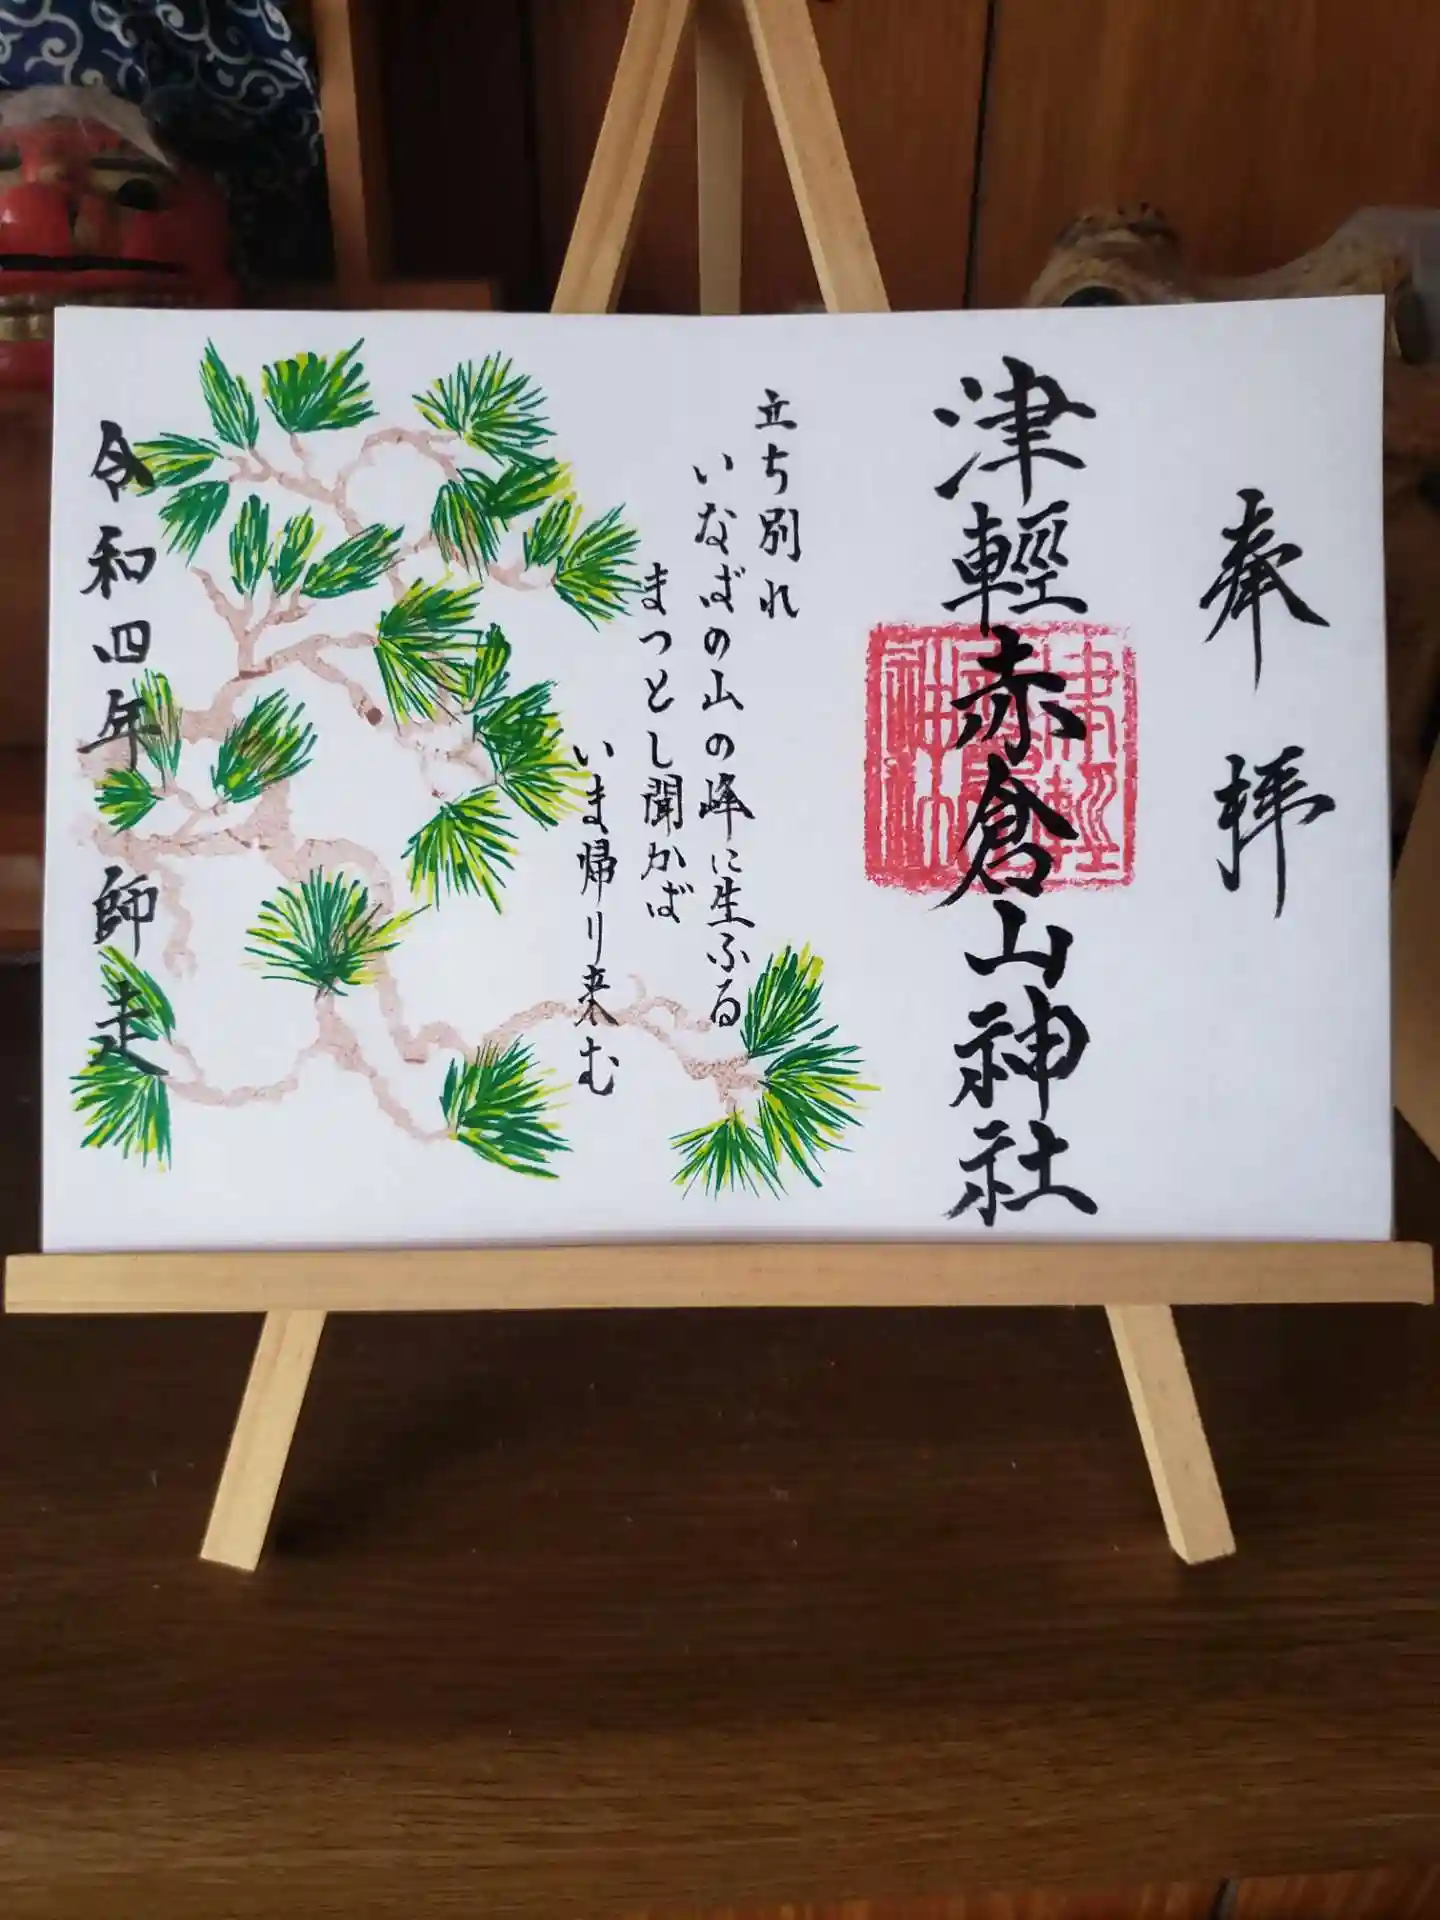 奉拝
津輕赤倉山神社
立ち別れ
いなばの山の峰に生ふる
まつとし聞かば
いま帰り来む
令和四年師走